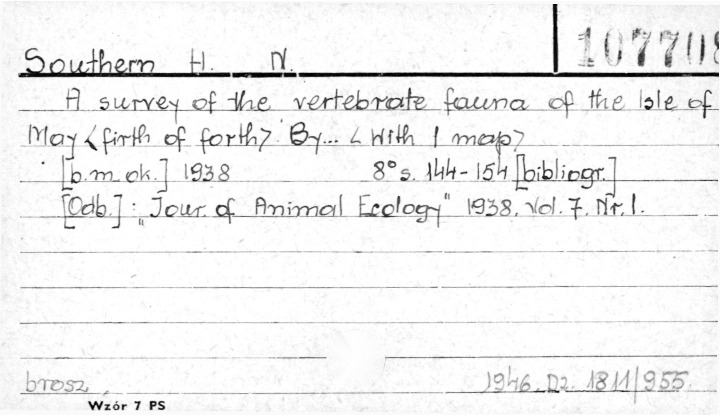 Southern H. N. 107708
A survey of the vertebrate fauna of the Isle of
May <firth of forth> By... < With 1 map>
[b.m.ok.] 1938 8° s. 144-154 [bibliogr.]
[Odb.]: „Jour. of Animal Ecology" 1938. Vol. 7. Nr. 1.
brosz. 1946. Dz. 1811/955.
Wzór 7 PS